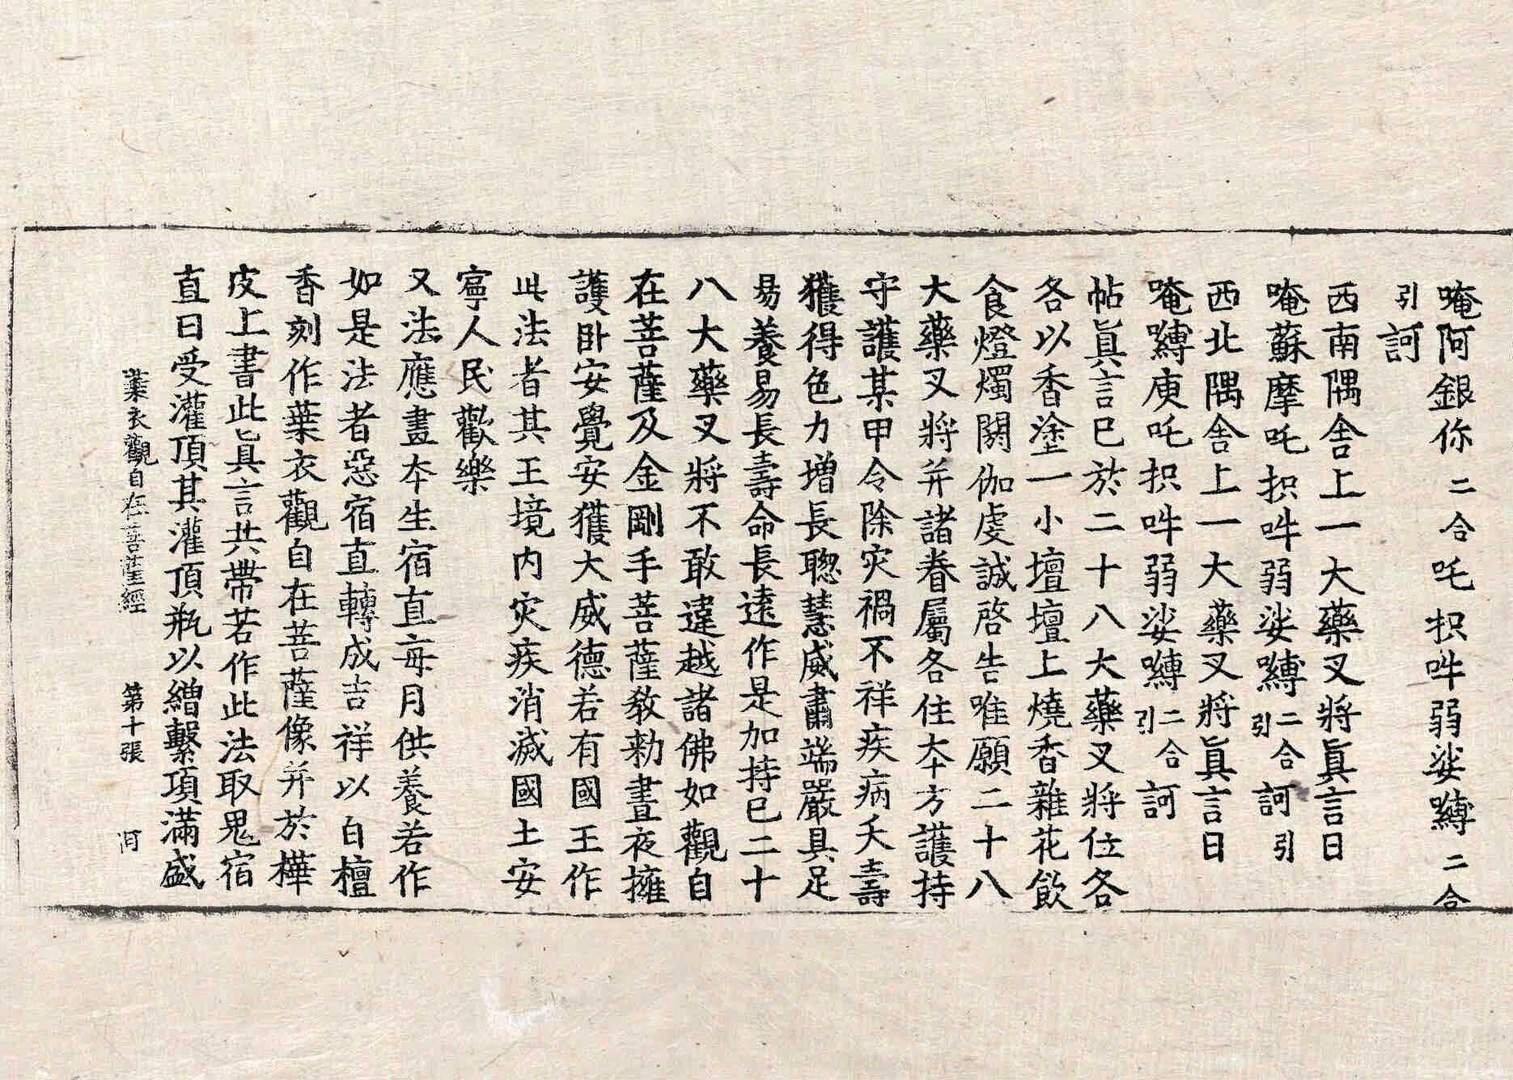 唵阿銀你二合吒枳吽弱娑嚩二合
引訶
西南隅舍上一大藥叉將眞言曰
唵蘇摩吒枳吽弱娑嚩二合引訶引
西北隅舍上一大藥叉將眞言曰
唵嚩庾吒枳吽弱娑嚩二合引訶
帖眞言已於二十八大藥叉將位各
各以香塗一小壇壇上燒香雜花飲
食燈燭閼伽虔誠啓告唯願二十八
大藥叉將并諸眷屬各住本方護持
守護某甲令除灾禍不祥疾病夭壽
獲得色力增長聦慧威肅端嚴具足
易養易長壽命長遠作是加持已二十
八大藥叉將不敢違越諸佛如觀自
在菩薩及金剛手菩薩教勑晝夜擁
護卧安覺安獲大威德若有國王作
此法者其王境内灾疾消滅國土安
寧人民歡樂
又法應畫本生宿直每月供養若作
如是法者惡宿直轉成吉祥以白檀
香刻作葉衣觀自在菩薩像并於樺
皮上書此眞言共帶若作此法取鬼宿
直日受灌頂其灌頂瓶以繒繫項滿盛
葉衣觀自在菩薩經 第十張